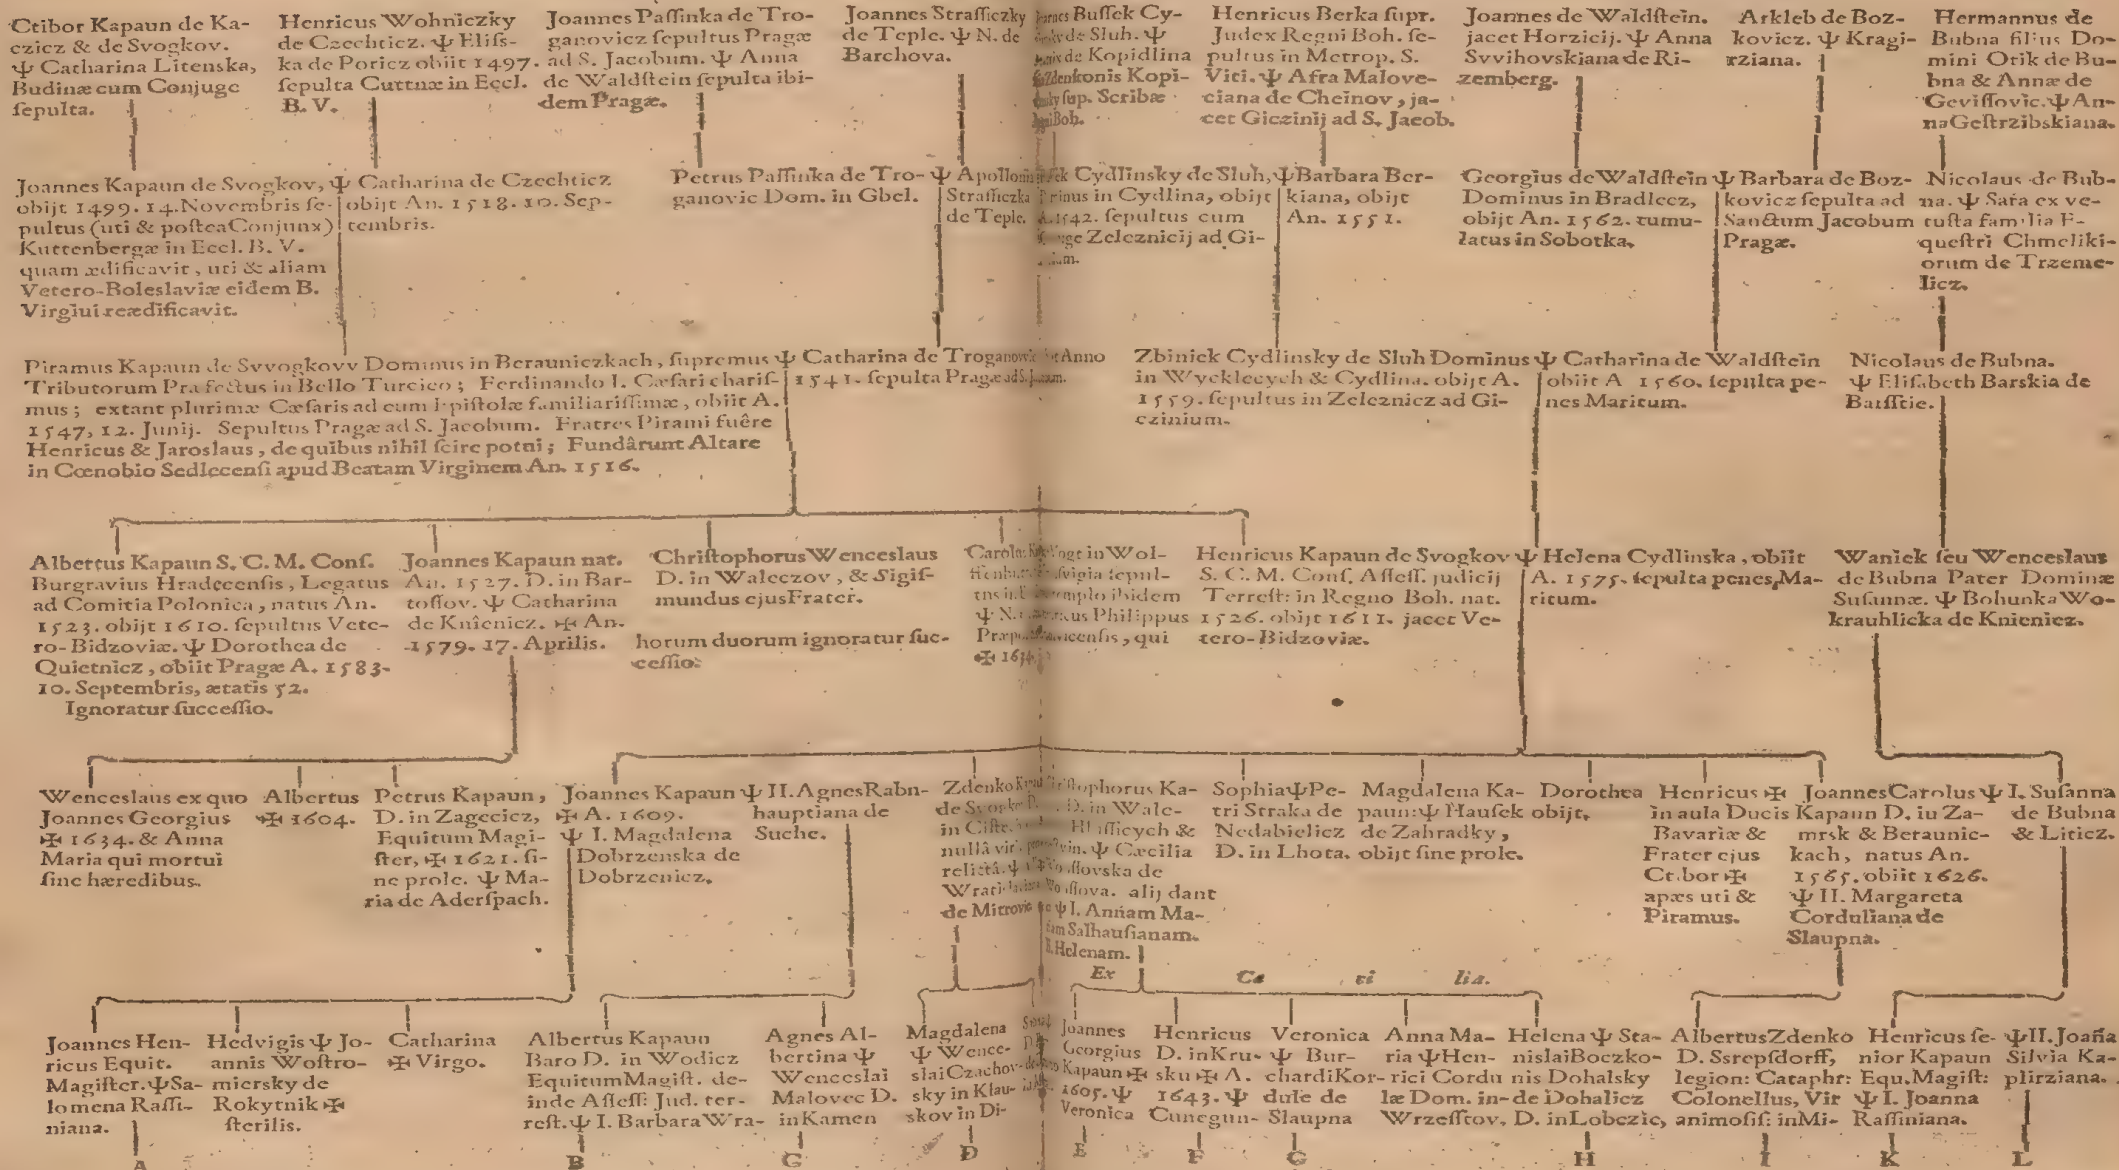 Ctibor Kapaun de Ka-
czicz & de Svogkov.
Ψ Catharina Litenska,
Budinæ cum Conjuge
ſepulta.
Henricus Wohniczky
de Czechticz. Ψ Eliſs-
ka de Poricz obiit 1497.
ſepulta Cuttnæ in Eccl.
B. V.
Joannes Paſſinka de Tro-
ganovicz ſepultus Pragæ
ad S. Jacobum. Ψ Anna
de Waldſtein ſepulta ibi-
dem Pragæ.
Joannes Straſſiczky
de Teple. Ψ N. de
Barchova.
Buſſek Cy-
de Sluh. Ψ
de Kopidlina
Zdenkonis Kopi-
ſup. Scribæ
Boh.
Henricus Berka ſupr.
Judex Regni Boh. ſe-
pultus in Metrop. S.
Viti. Ψ Afra Malove-
ciana de Cheinov, ja-
cet Giczinij ad S. Jacob.
Joannes de Waldſtein.
jacet Horzicij. Ψ Anna
Svvihovskiana de Ri-
zemberg.
Arkleb de Boz-
kovicz. Ψ Kragi-
rziana.
Hermannus de
Bubna filius Do-
mini Otik de Bu-
bna & Annæ de
Geviſſovic. Ψ An-
na Geſtrzibskiana.
Joannes Kapaun de Svogkov, Ψ
obijt 1499. 14. Novembris ſe-
pultus (uti & poſtea Conjunx)
Kuttenbergæ in Eccl. B. V.
quam ædificavit, uti & aliam
Vetero-Boleslaviæ eidem B.
Virgiui reædificavit.
Catharina de Czechticz
obijt An. 1518. 10. Sep-
tembris.
Petrus Paſſinka de Tro-
ganovic Dom. in Gbel.
Ψ Apollonia
Straſſiczka
de Teple.
Cydlinsky de Sluh,
Primus in Cydlina, obijt
A. 1542. ſepultus cum
Zeleznicij ad Gi-
Ψ Barbara Ber-
kiana, obijt
An. 1551.
Georgius de Waldſtein
Dominus in Bradlecz,
obijt An. 1562. tumu-
latus in Sobotka.
Ψ Barbara de Boz-
kovicz ſepulta ad
Sanctum Jacobum
Pragæ.
Nicolaus de Bub-
na. Ψ Sara ex ve-
tuſta familia E-
queſtri Chmeliki-
orum de Trzeme-
licz.
Piramus Kapaun de Svvogkovv Dominus in Berauniczkach, ſupremus
Tributorum Præfectus in Bello Turcico; Ferdinando I. Cæſari chariſ-
mus; extant plurimæ Cæſaris ad eum Epiſtolæ familiariſſimæ, obiit A.
1547, 12. Junij. Sepultus Pragæ ad S. Jacobum. Fratres Pirami fuêre
Henricus & Jaroslaus, de quibus nihil ſcire potui; Fundârunt Altare
in Cœnobio Sedlecenſi apud Beatam Virginem An. 1516.
Ψ Catharina de Troganowic Anno
1541. ſepulta Pragæ ad S.
Zbiniek Cydlinsky de Sluh Dominus
in Wyckleeych & Cydlina. obijt A.
1559. ſepultus in Zeleznicz ad Gi-
czinium.
Ψ Catharina de Waldſtein
obiit A 1560. ſepulta pe-
nes Maritum.
Nicolaus de Bubna.
Ψ Eliſabeth Barskia de
Barſſtie.
Albertus Kapaun S. C. M. Conſ.
Burgravius Hradecenſis, Legatus
ad Comitia Polonica, natus An.
1523. obijt 1610. ſepultus Vete-
ro-Bidzoviæ. Ψ Dorothea de
Quietnicz, obiit Pragæ A. 1583.
10. Septembris, ætatis 52.
Ignoratur ſucceſſio.
Joannes Kapaun nat.
An. 1527. D. in Bar-
toſſov. Ψ Catharina
de Knienicz. ✠ An.
1579. 17. Aprilis.
Chriſtophorus Wenceslaus
D. in Waleczov, & Sigiſ-
mundus ejus Frater.
horum duorum ignoratur ſuc-
ceſſio.
Carolus Vogt in Wol-
ſepul-
templo ibidem
Ψ N. Philippus
qui
✠ 1634.
Henricus Kapaun de Svogkov
S. C. M. Conſ. Aſſeſſ. judicij
Terreſt: in Regno Boh. nat.
1526. obijt 1611. jacet Ve-
tero-Bidzoviæ.
Ψ Helena Cydlinska, obiit
A. 1575. ſepulta penes Ma-
ritum.
Waniek ſeu Wenceslaus
de Bubna Pater Dominæ
Suſannæ. Ψ Bohunka Wo-
krauhlicka de Knienicz.
Wenceslaus ex quo
Joannes Georgius
✠ 1634. & Anna
Maria qui mortui
ſine hæredibus.
Albertus
✠ 1604.
Petrus Kapaun,
D. in Zagecicz,
Equitum Magi-
ſter, ✠ 1621. ſi-
ne prole. Ψ Ma-
ria de Aderſpach.
Joannes Kapaun
✠ A. 1609.
Ψ I. Magdalena
Dobrzenska de
Dobrzenicz.
Ψ II. Agnes Rabn-
hauptiana de
Suche.
Zdenko
de
in
nullâ
relictâ. Ψ
de Mitrovic
Ka-
D. in Wale-
&
Ψ Cæcilia
de
alij dant
Ψ I. Annam Ma-
Salhauſianam.
II. Helenam.
Sophia Ψ Pe-
tri Straka de
Nedabielicz
D. in Lhota.
Magdalena Ka-
paun: Ψ Hauſek
de Zahradky,
obijt ſine prole.
Dorothea
obijt.
Henricus ✠
in aula Ducis
Bavariæ &
Frater ejus
Ctibor ✠
apæs uti &
Piramus.
Joannes Carolus
Kapaun D. iu Za-
mrsk & Beraunic-
kach, natus An.
1565. obiit 1626.
Ψ II. Margareta
Corduliana de
Slaupna.
Ψ I. Suſanna
de Bubna
& Liticz.
Ex Cæ ci lia.
Joannes Hen-
ricus Equit.
Magiſter. Ψ Sa-
lomena Raſſi-
niana.
Hedvigis Ψ Jo-
annis Woſtro-
miersky de
Rokytnik ✠
ſterilis.
Catharina
✠ Virgo.
Albertus Kapaun
Baro D. in Wodicz
Equitum Magiſt. de-
inde Aſſeſſ: Jud. ter-
reſt. Ψ I. Barbara Wra-
Agnes Al-
bertina Ψ
Wenceslai
Malovec D.
in Kamen
Magdalena
Ψ Wence-
slai Czachov-
sky in Klau-
skov in Di-
Joannes
Georgius
Kapaun ✠
1605. Ψ
Veronica
Henricus
D. in Kru-
sku ✠ A.
1643. Ψ
Cunegun-
Veronica
Ψ Bur-
chardi Kor-
dule de
Slaupna
Anna Ma-
ria Ψ Hen-
rici Cordu
læ Dom. in
Wrzeſſtov.
Helena Ψ Sta-
nislai Boczko-
nis Dohalsky
de Dohalicz
D. in Lobczic,
Albertus Zdenko
D. Ssrepſdorff,
legion: Cataphr:
Colonellus, Vir
animoſiſ: in Mi-
Henricus ſe-
nior Kapaun
Equ. Magiſt:
Ψ I. Joanna
Raſſiniana.
Ψ II. Joaña
Silvia Ka-
plirziana.
A
B
C
D
E
F
G
H
I
K
L